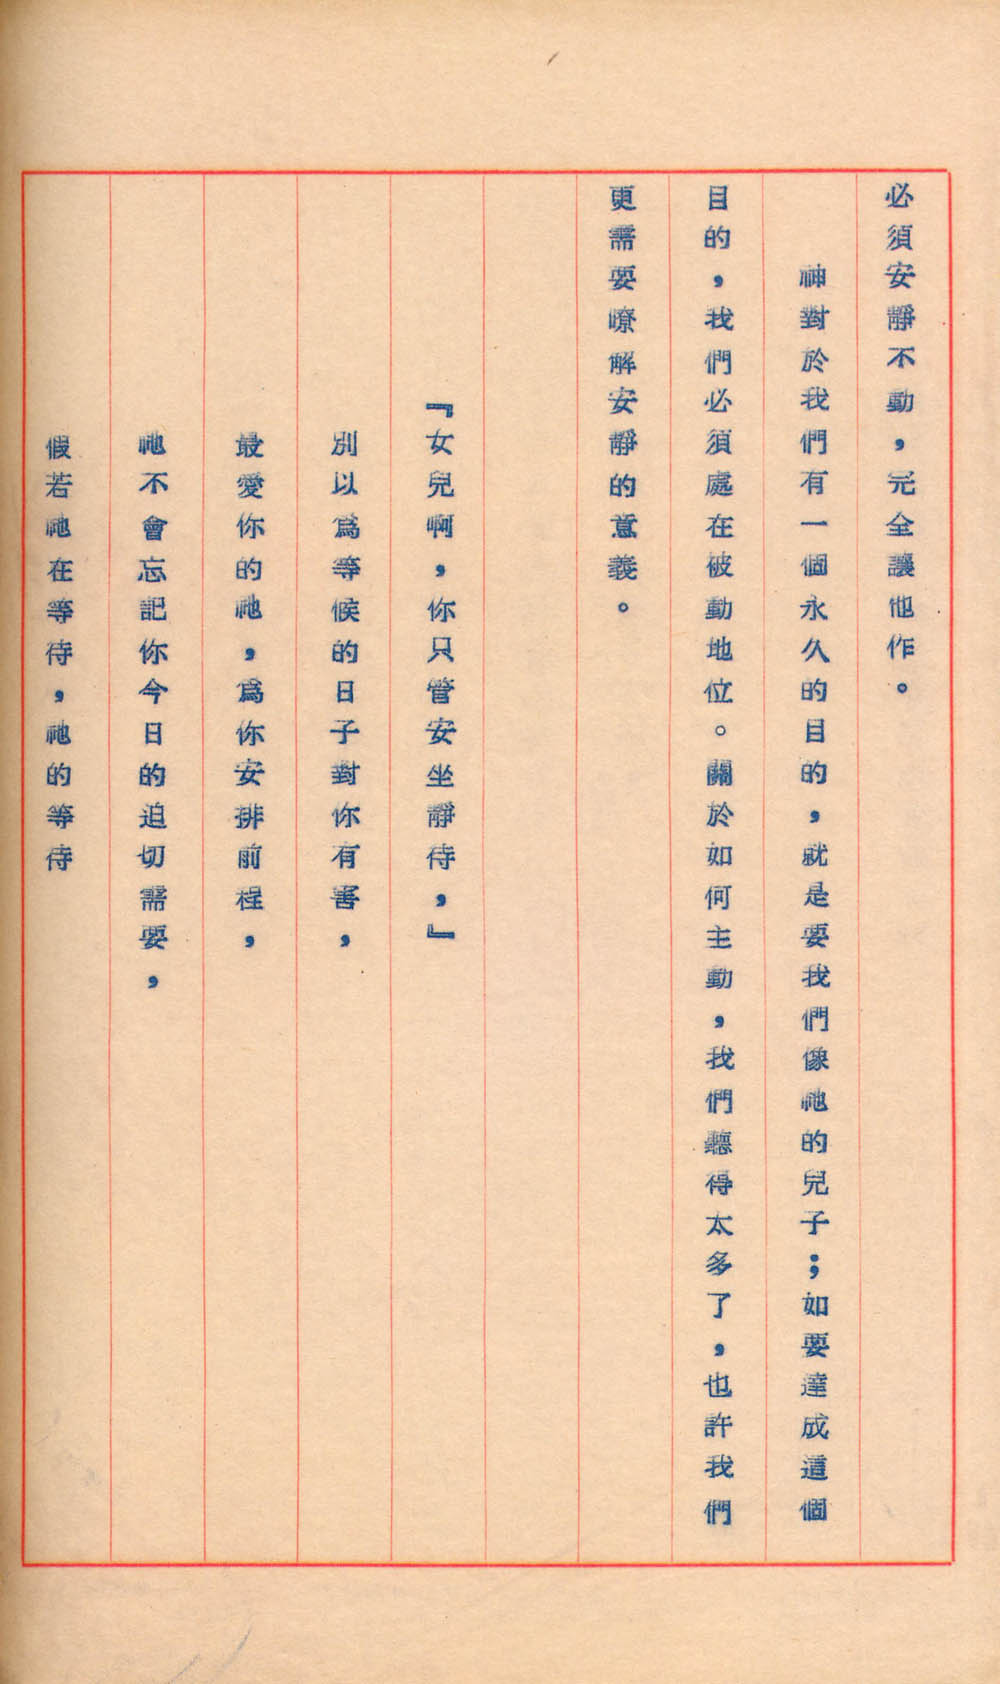 必須安靜不動，完全讓他作。
神對於我們有一個永久的目的，就是要我們像祂的兒子；如要達成這個
目的，我們必須處在被動地位。關於如何主動，我們聽得太多了，也許我們
更需要暸解安靜的意義。
『女兒啊，你只管安坐靜待，』
別以爲等候的日子對你有害，
最愛你的祂，爲你安排前程，
祂不會忘記你今日的迫切需要，
假若祂在等待，祂的等待